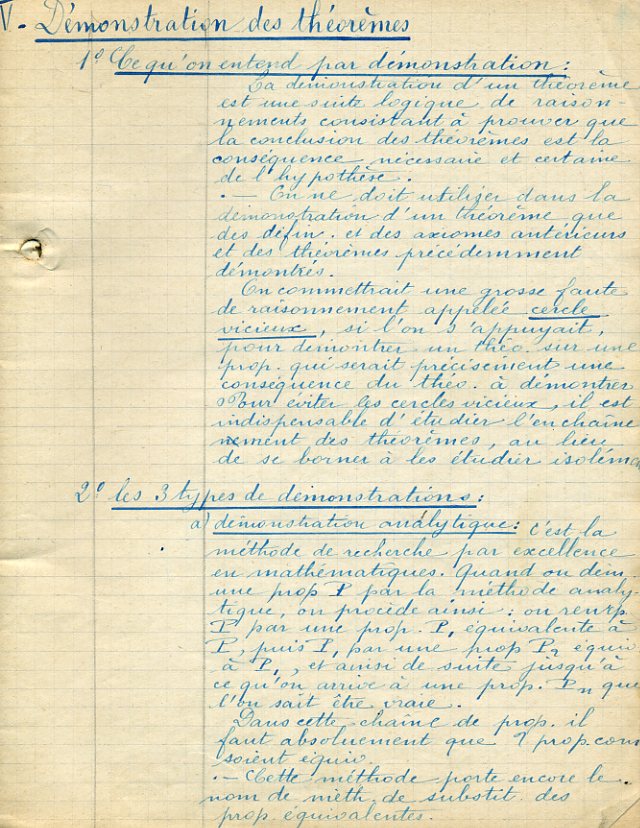 V. Démonstration des théorèmes
1° Ce qu'on entend par démonstration :
La démonstration d'un théorème
est une suite logique de raison-
nements consistant à prouver que
la conclusion des théorèmes est la
conséquence nécessaire et certaine
de l'hypothèse.
. — On ne doit utiliser dans la
démonstration d'un théorème que
des défin. et des axiomes antérieurs
et des théorèmes précédemment
démontrés.
On commettrait une grosse faute
de raisonnement appelée cercle
vicieux, si l'on s'appuyait,
pour démontrer un théo. sur une
prop. qui serait précisement une
conséquence du théo. à démontrer
Pour éviter les cercles vicieux, il est
indispensable d'étudier l'enchaîne
nement des théorèmes, au lieu
de se borner à les étudier isolémen
2° les 3 types de démonstrations :
a) démonstration analytique : C'est la
méthode de recherche par excellence
en mathématiques. Quand on dém.
une prop P par la méthode analy-
tique, on procède ainsi : on remp.
P par une prop. P1 équivalente à
P, puis P1 par une prop P2 équiv
à P1, et ainsi de suite jusqu'à
ce qu'on arrive à une prop. Pn que
l'on sait être vraie.
Dans cette chaîne de prop. il
faut absoluement que 2 prop. cons
soient équiv.
. — Cette méthode porte encore le
nom de méth. de substit. des
prop. équivalentes.